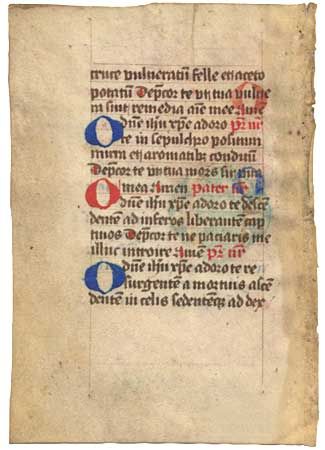 cruce vulneratū felle et aceto
potatū Depcor te vt tua vulne
ra sint remedia aīe mee Amē
O dn̄e ih̄u xp̄e adoro pr̄ nr̄
te in sepulcro positum
mirra et aromatibꝫ conditū
Depcor te vt tua mors sit vita
mea Amen Pater
O dn̄e ih̄u xp̄e adoro te descē
dentē ad inferos liberantē cap
tiuos Depcor te ne paciaris me
illuc introire Amē pr̄ nr̄
O dn̄e ih̄u xp̄e adoro te re
surgentē a mortuis ascē
dentē in celis sedentēqꝫ ad dex